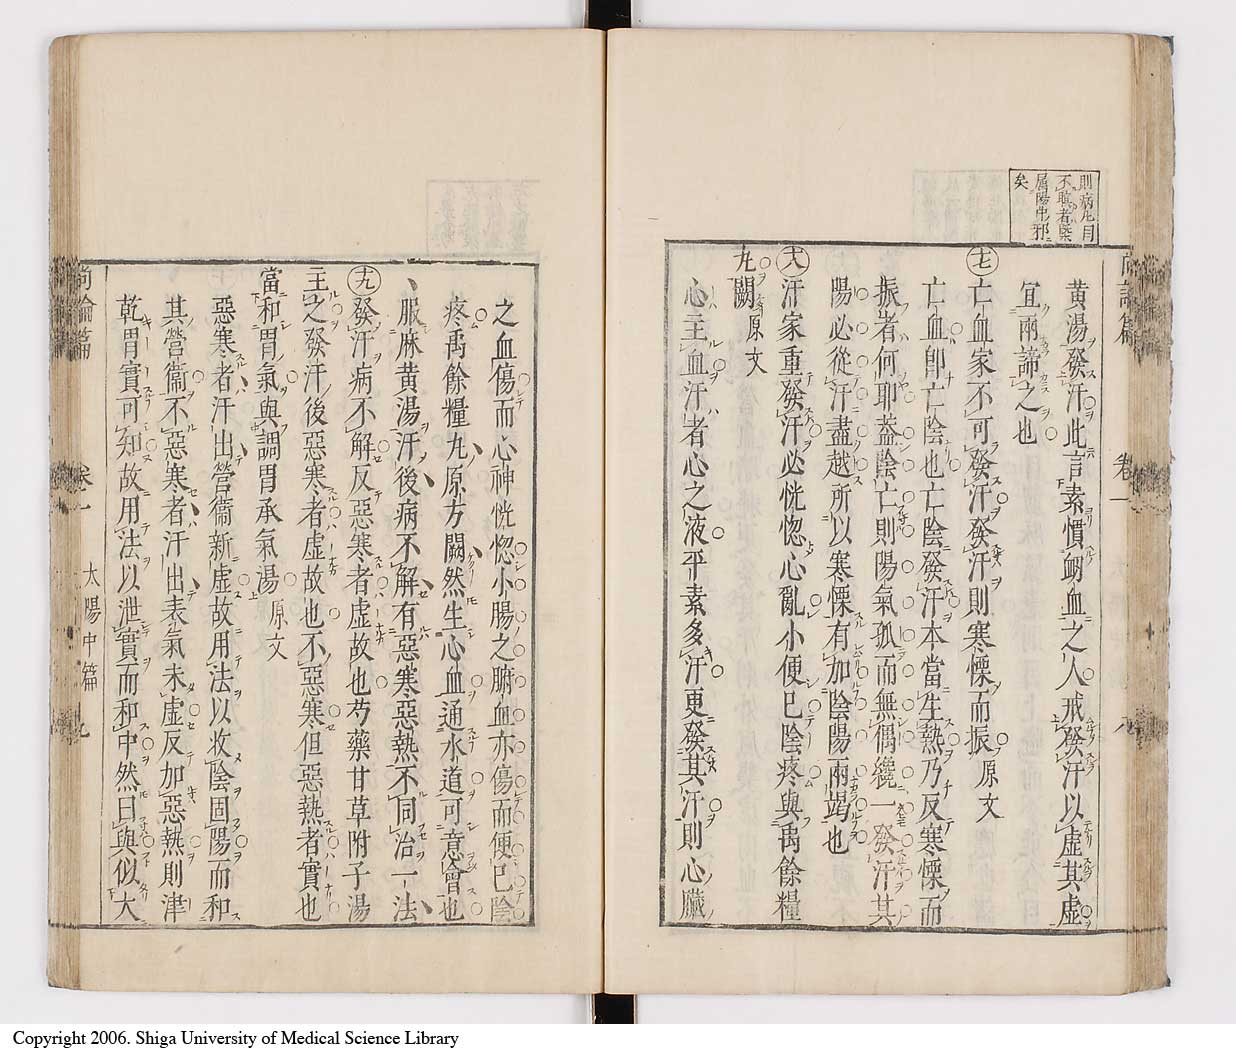 則病尤目
不瞋者陰
屬陽中邪
矣
黃湯發汗此言素慣衂血之人戒發汗以虛其虛
宜兩諦之也
七 亡血家不可發汗發汗則寒慄而振原文
亡血卽亡陰也亡陰發汗本當生熱乃反寒慄而
振者何耶葢陰亡則陽氣孤而無偶纔一發汗其
陽必從汗盡越所以寒慄有加陰陽兩竭也
汗家重發汗必恍惚心亂小便已陰疼與禹餘糧
九闕原文
心主血汗者心之液平素多汗更發其汗則心臟
尚論篇 卷一 八
之血傷而心神恍惚小腸之腑血亦傷而便已陰
疼禹餘糧九原方闕然生心血通水道可意會也
服麻黃湯汗後病不解有惡寒惡熱不同治一法
發汗病不解反惡寒者虛故也芍藥甘草附子湯
主之發汗後惡寒者虛故也不惡寒但惡熱者實也
當和胃氣與調胃承氣湯原文
惡寒者汗出營衞新虛故用法以收陰固陽而和
其營衞不惡寒者汗出表氣未虛反加惡熱則津
乾胃實可知故用法以泄實而和中然曰與似大
尚論篇 卷一 太陽中篇 九
Copyright 2006. Shiga University of Medical Science Library